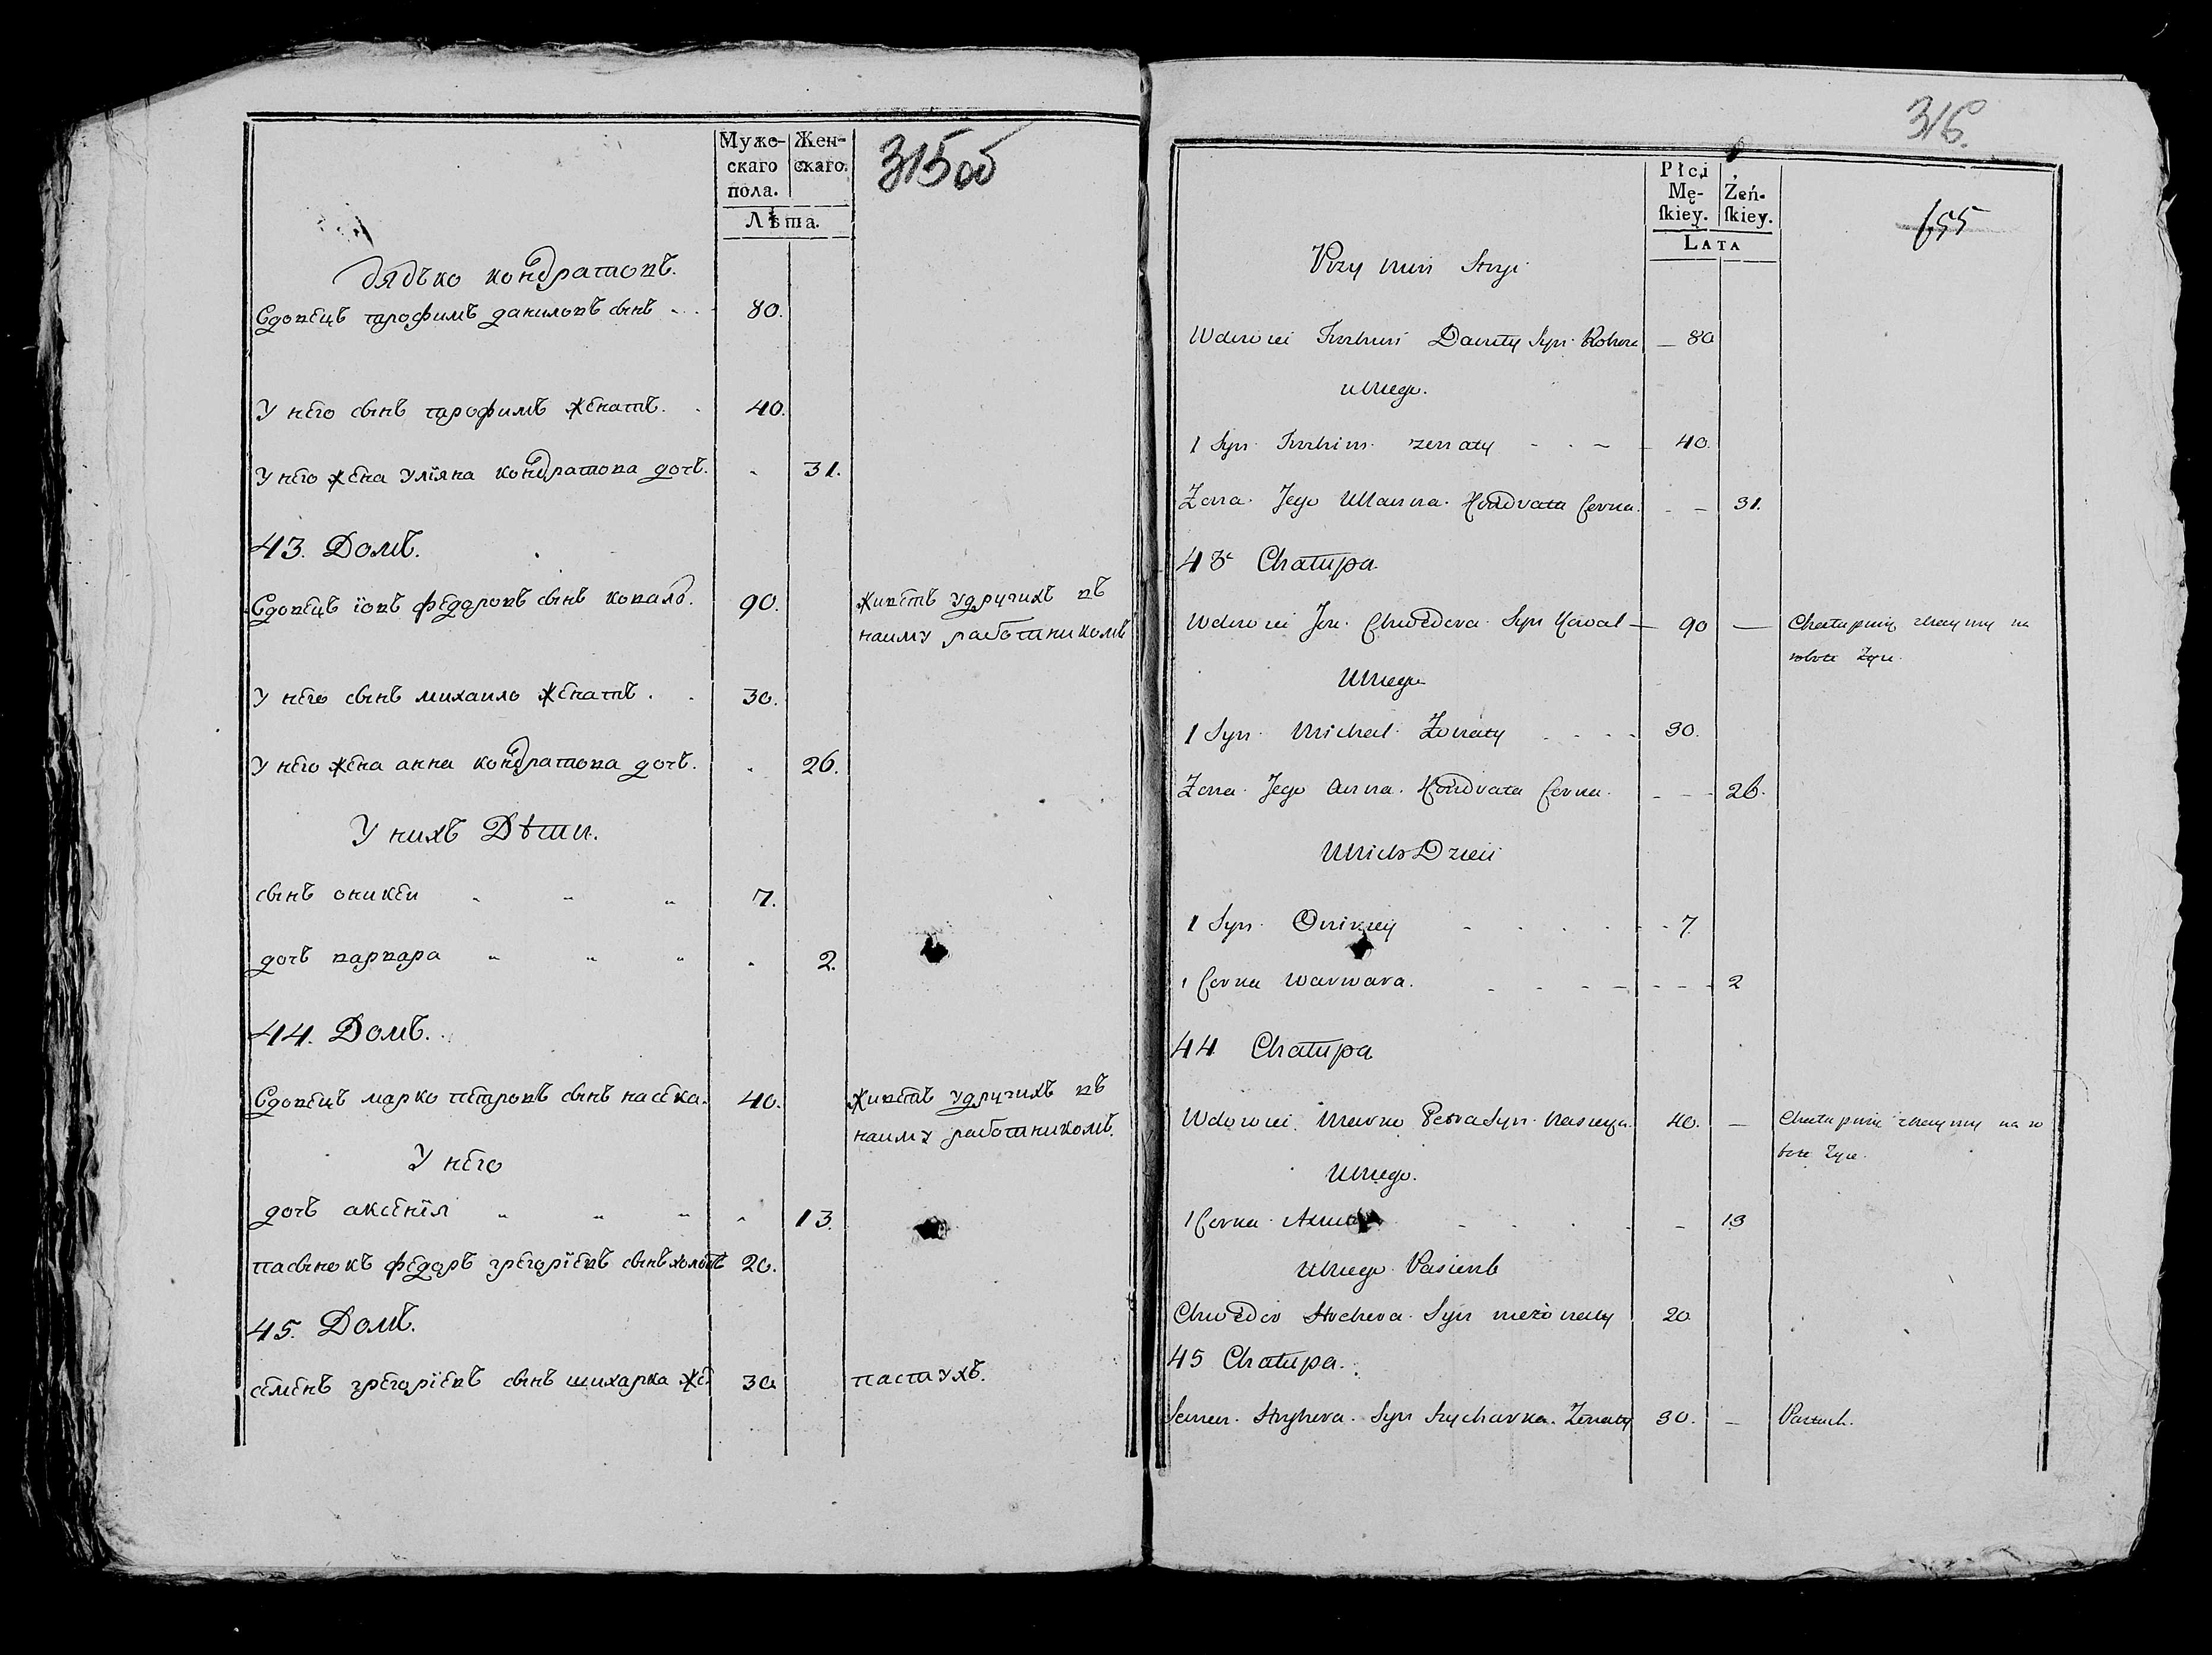 Муже-
скаго
пола.
Жен-
скаго.
Лѣта.
315об
дядько кондратовъ.
Вдовецъ трофимъ даниловъ сынъ 80.
У него сынъ трофимъ женатъ. 40.
У него жена улїяна кондратова дочь. 31.
43. Домъ.
Вдовецъ їовъ федоровъ сынъ коваль. 90. живетъ удругихъ въ
найму работникомъ
У него сынъ михайло женатъ. 30.
У него жена анна кондратова дочь. 26.
У нихъ Дѣти.
сынъ оникей 7.
дочь варвара 2.
44. Домъ.
Вдовецъ марко петровъ сынъ насека. 40. живетъ удругихъ въ
найму работникомъ.
У него
дочь аксенїя 13.
пасынокъ федоръ грегорїевъ сынъ холостъ 20.
45. Домъ.
семенъ грегорїевъ сынъ шихарка же 30 пастухъ.
316.
Płci
Mę-
skiey.
Żeń-
skiey.
Lata
655
Przy nim Stryi
Wdowiec Daniły Syn 80
uniego.
1 Syn żenaty 40.
Żona Jego Ullanna Kondrata Corka 31.
43 Chałupa
Wdowiec Jow Chwedora Syn Kowal 90
Uniego
1 Syn Michał Żonaty 30.
Żona Jego Anna Kondrata Corka 26.
Unich Dzieci
1 Syn Onikiey 7
1 Corka Warwara. 2
44 Chałupa
Wdowiec Marko Petra Syn Nasieka 40.
Uniego.
1 Corka 13
Unego Pasierb
Chwedor Syn nieżonaty 20
45 Chałupa.
Semen Hryhora Syn Szycharka Żenaty 30. Pastuch.